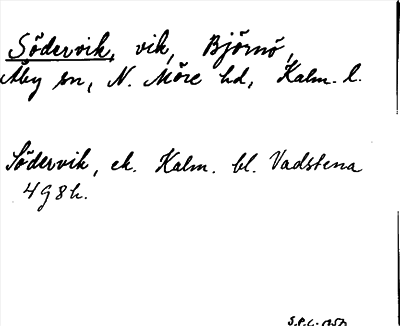 Södervik, vik, Björnö,
Åby sn, N. Möre hd, Kalm. l.
Södervik, ek. Kalm. bl. Vadstena
498h.